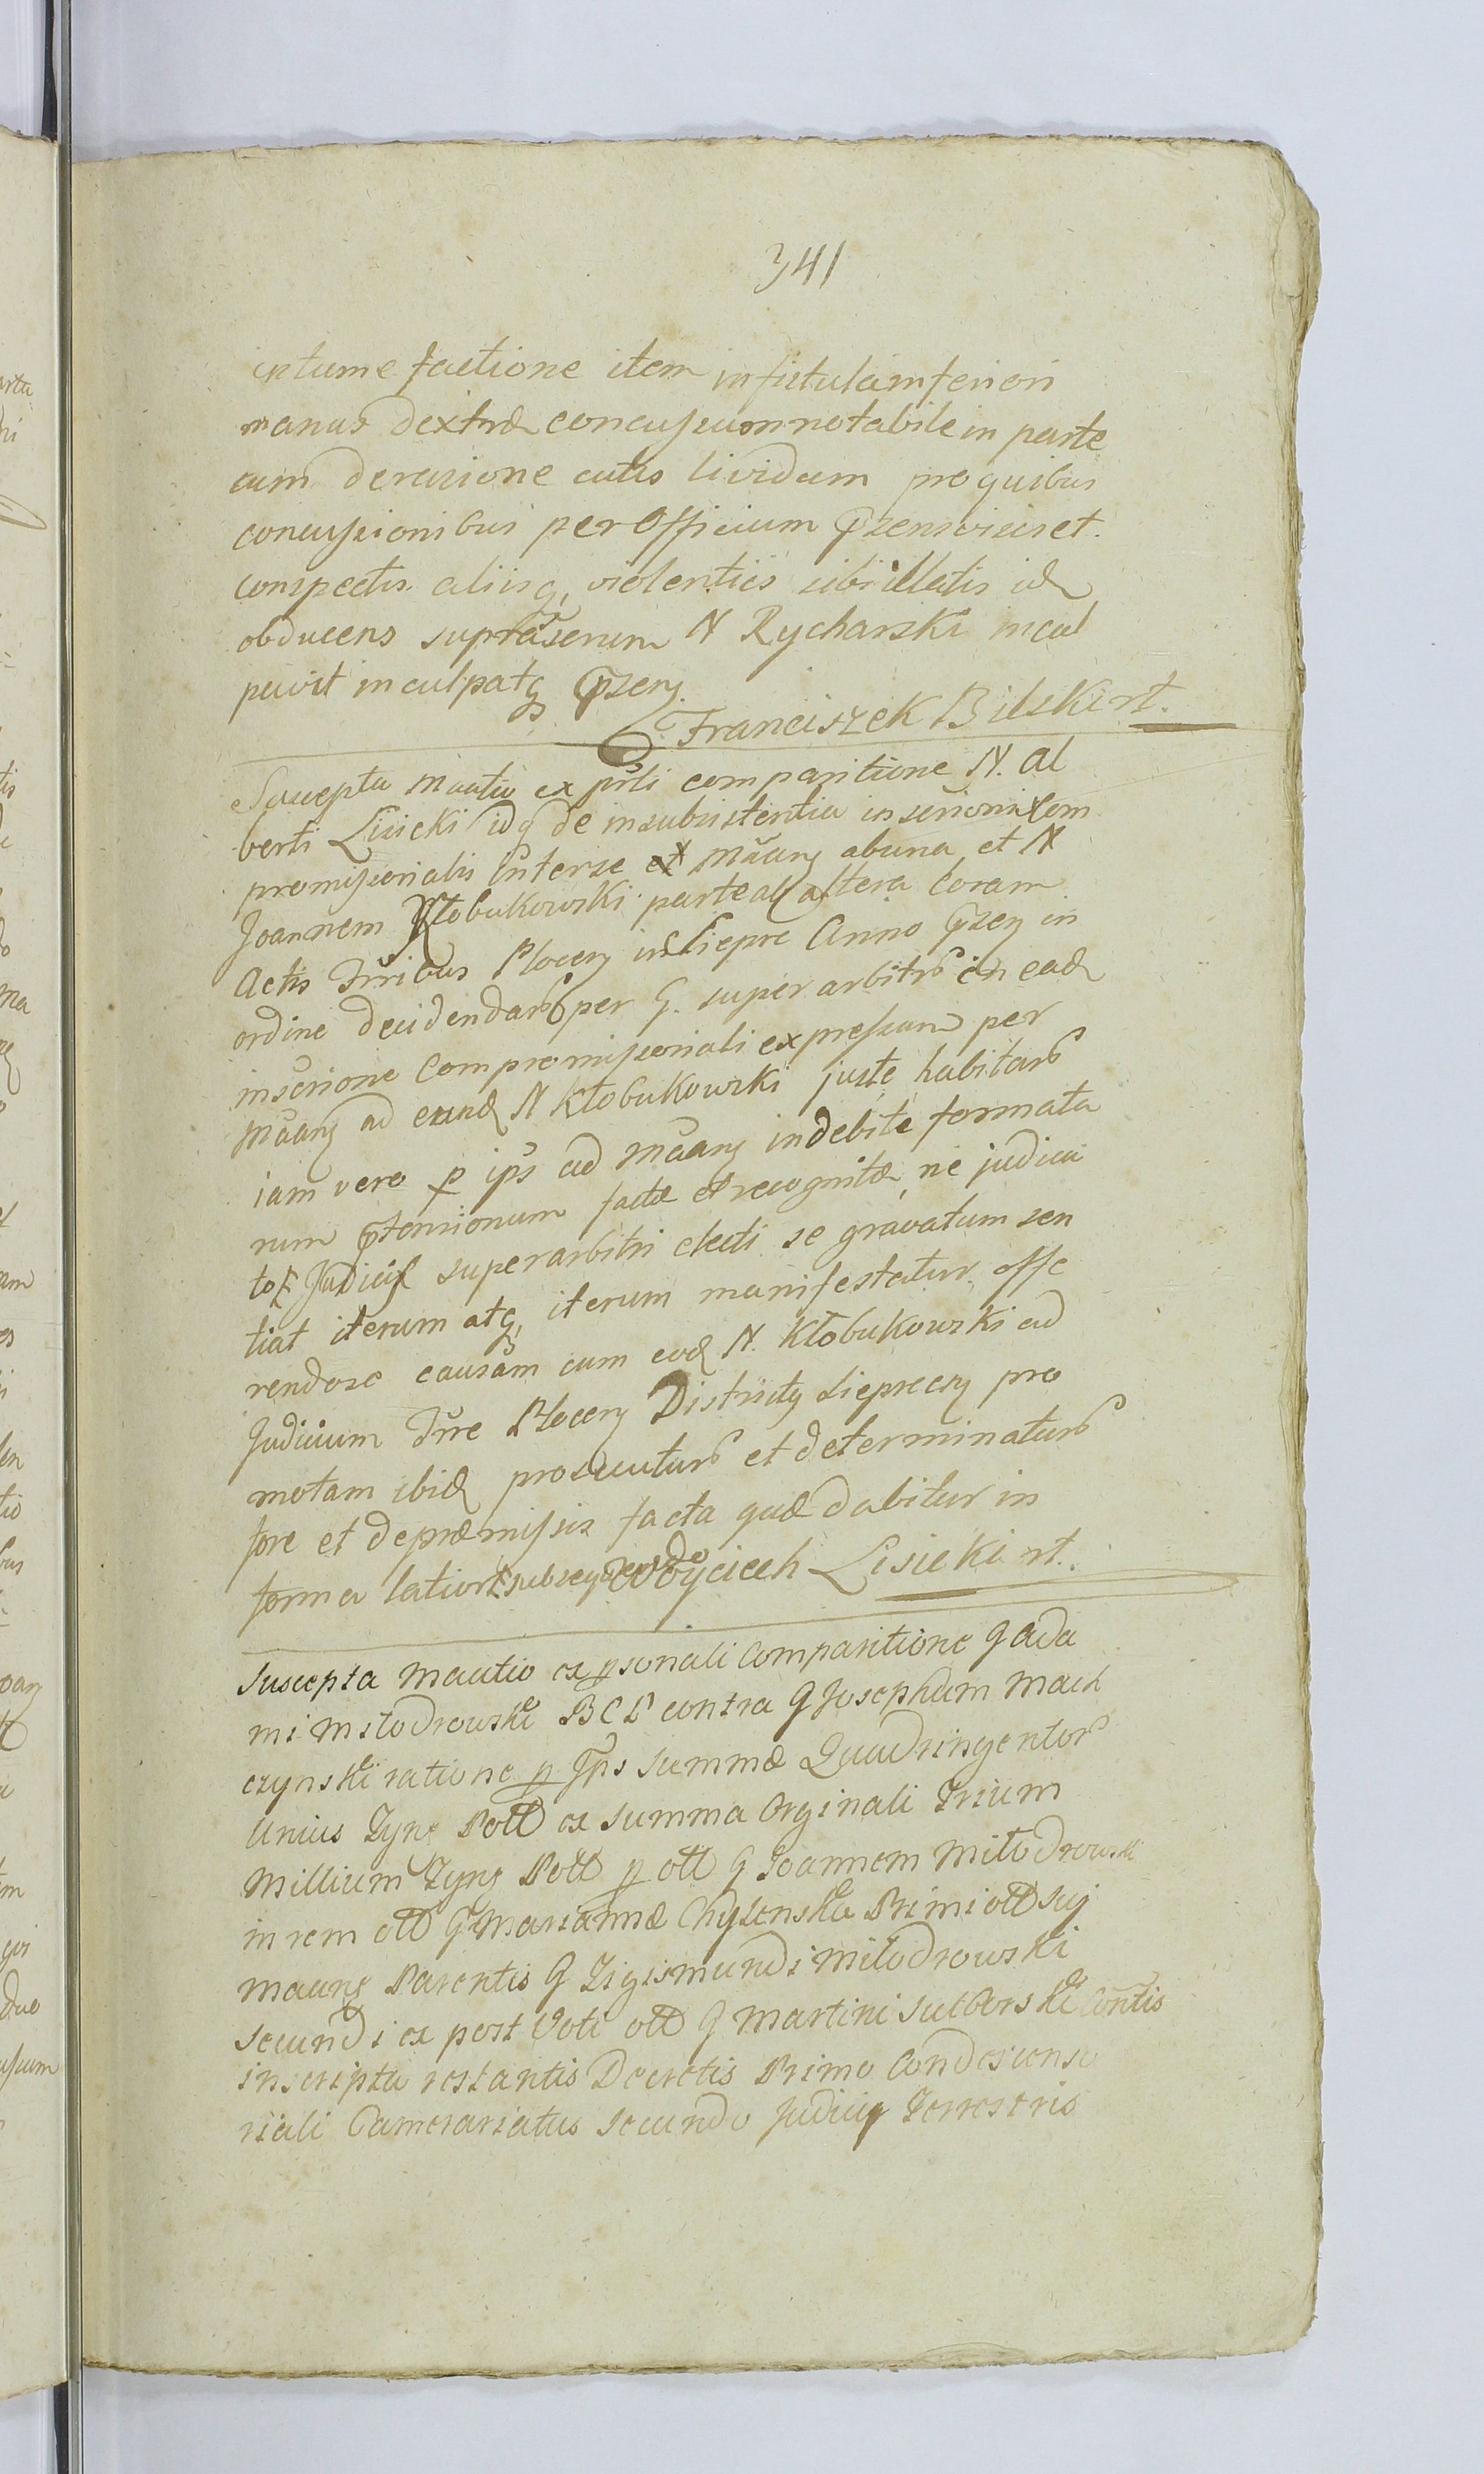 341
intumefactione item in fistula inferiori
manus dextræ concussionem notabile in parte
cum derasione cutis lividam pro quibus
concussionibus per Officium pñzens visis et
conspectis aliisq, violentiis sibi illatis id
obducens supra serum N Rycharski incul
pavit inculpatq pñzeny
Franciszek Bilski rt.
Suscepta Maãtio ex prli comparitione N. Al
berti Lisicki idq de insubsistentia inscrionis Com
promissionalis Inter se et Mãany ab una et N
Joannem Kłobukowski parte ab altera Coram
Actis Trribus Plocen in Sieprc Anno pñzen in
ordine decidendar per G. superarbitr in ead
inscrione Compromissionali expressum per
Mãany ad eund N Kłobukowski juste habitar
iam vero p ips ad Mãany indebite formata
rum ptensionum factæ et recognitæ, ne judica
to Judicij superarbitri electi se gravatum sen
tiat iterum atq, iterum manifestatur offe
rendose causam cum eod N. Kłobukowski ad
Judicium Trre Plocen Districtq Sieprcen pro
motam ibid prosecutur et determinatur
fore et de præmissis facta quæ dabitur in
forma latiori subseque
Woyciech Lisicki rt.
Suscepta Maãtio ex psonali Comparitione G Ada
mi Miłodrowski B C P contra G Josephum Mack
czynski ratione p Ips Summæ Quadringentor
Unius Zyng Poll ex Summa Orginali Trium
Millium Zyng Poll p olt G Joannem Miłodrowski
in rem olt G Mariannæ Chylenska Primi olt Suj
Maang Parentis G Zigismundi Miłodrowski
Secundi ex post Voti olt G Martini Sutkorski Contis
inscripta restantis Decretis Primo Condescenso
riali Camerariatus Secundo Judicij Terrestris